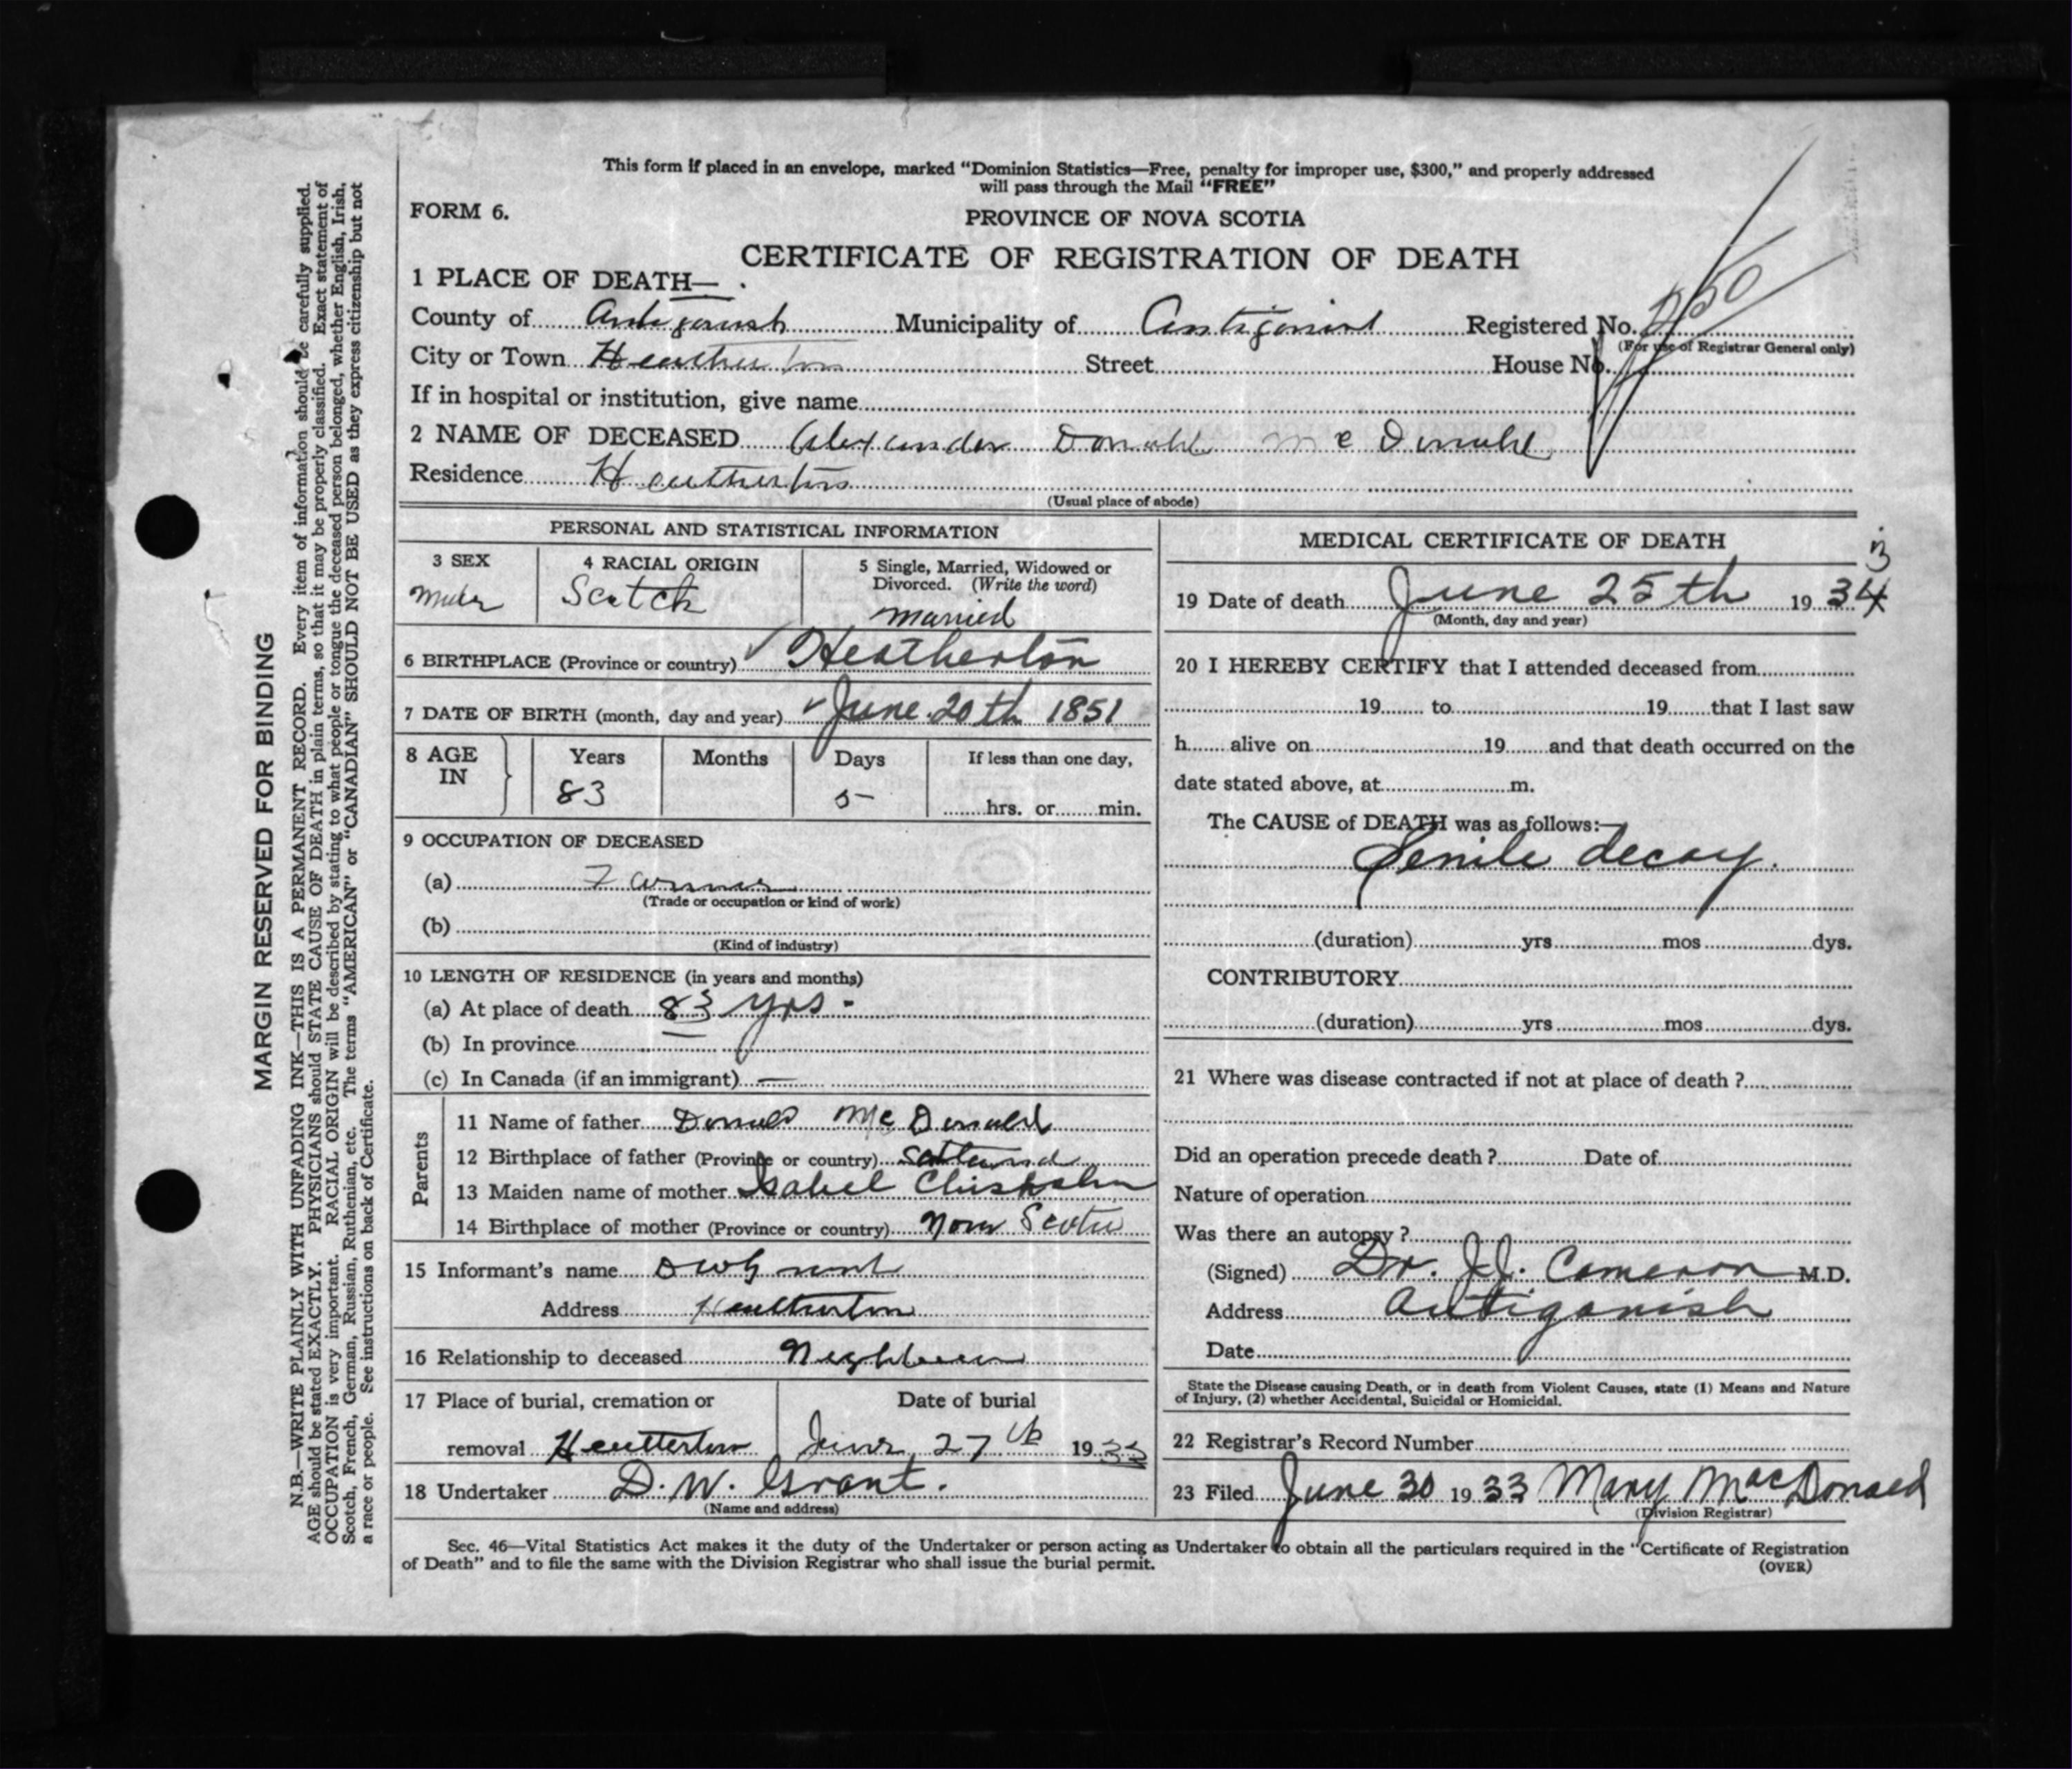 This form if placed in an envelope, marked “Dominion Statistics—Free, penalty for improper use, $300,” and properly addressed
will pass through the Mail “FREE”
FORM 6.
PROVINCE OF NOVA SCOTIA
CERTIFICATE OF REGISTRATION OF DEATH
1 PLACE OF DEATH—
County of Antigonish Municipality of Antigonish Registered No.
(For use of Registrar General only)
City or Town Heatherton Street House No.
If in hospital or institution, give name
2 NAME OF DECEASED Alexander Donald McDonald
Residence Heatherton
(Usual place of abode)
PERSONAL AND STATISTICAL INFORMATION
3 SEX 4 RACIAL ORIGIN 5 Single, Married, Widowed or
Divorced. (Write the word)
Male Scotch Married
6 BIRTHPLACE (Province or country) Heatherton
7 DATE OF BIRTH (month, day and year) June 20th 1851
8 AGE IN Years Months Days If less than one day,
83 5 hrs. or min.
9 OCCUPATION OF DECEASED
(a) Farmer
(Trade or occupation or kind of work)
(b)
(Kind of industry)
10 LENGTH OF RESIDENCE (in years and months)
(a) At place of death 83 yrs
(b) In province
(c) In Canada (if an immigrant) —
Parents
11 Name of father Donald McDonald
12 Birthplace of father (Province or country) Scotland
13 Maiden name of mother Isabel Chisholm
14 Birthplace of mother (Province or country) Nova Scotia
15 Informant's name D W Grant
Address Heatherton
16 Relationship to deceased Neighbour
17 Place of burial, cremation or Date of burial
removal Heatherton June 27th 1933
18 Undertaker D. W. Grant.
(Name and address)
MEDICAL CERTIFICATE OF DEATH
3
19 Date of death June 25th 1934
(Month, day and year)
20 I HEREBY CERTIFY that I attended deceased from
19 to 19 that I last saw
h alive on 19 and that death occurred on the
date stated above, at m.
The CAUSE of DEATH was as follows:—
Senile decay.
(duration) yrs mos dys.
CONTRIBUTORY
(duration) yrs mos dys.
21 Where was disease contracted if not at place of death ?
Did an operation precede death ? Date of
Nature of operation
Was there an autopsy ?
(Signed) Dr. J.J. Cameron M.D.
Address Antigonish
Date
State the Disease causing Death, or in death from Violent Causes, state (1) Means and Nature
of Injury, (2) whether Accidental, Suicidal or Homicidal.
22 Registrar's Record Number
23 Filed June 30 1933 Mary MacDonald
(Division Registrar)
Sec. 46—Vital Statistics Act makes it the duty of the Undertaker or person acting as Undertaker to obtain all the particulars required in the “Certificate of Registration
of Death” and to file the same with the Division Registrar who shall issue the burial permit.
(OVER)
MARGIN RESERVED FOR BINDING
N.B.—WRITE PLAINLY WITH UNFADING INK—THIS IS A PERMANENT RECORD. Every item of information should be carefully supplied.
AGE should be stated EXACTLY. PHYSICIANS should STATE CAUSE OF DEATH in plain terms, so that it may be properly classified. Exact statement of
OCCUPATION is very important. RACIAL ORIGIN will be described by stating to what people or tongue the deceased person belonged, whether English, Irish,
Scotch, French, German, Russian, Ruthenian, etc. The terms “AMERICAN” or “CANADIAN” SHOULD NOT BE USED as they express citizenship but not
a race or people. See instructions on back of Certificate.